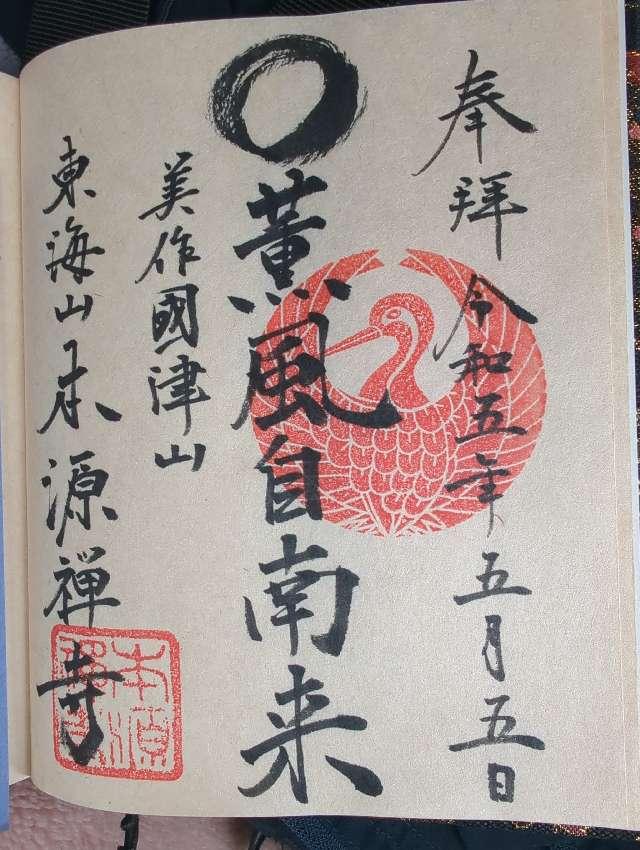 奉拜 令和五年五月五日
薫風自南来
美作國津山
東海山本源禅寺
本源